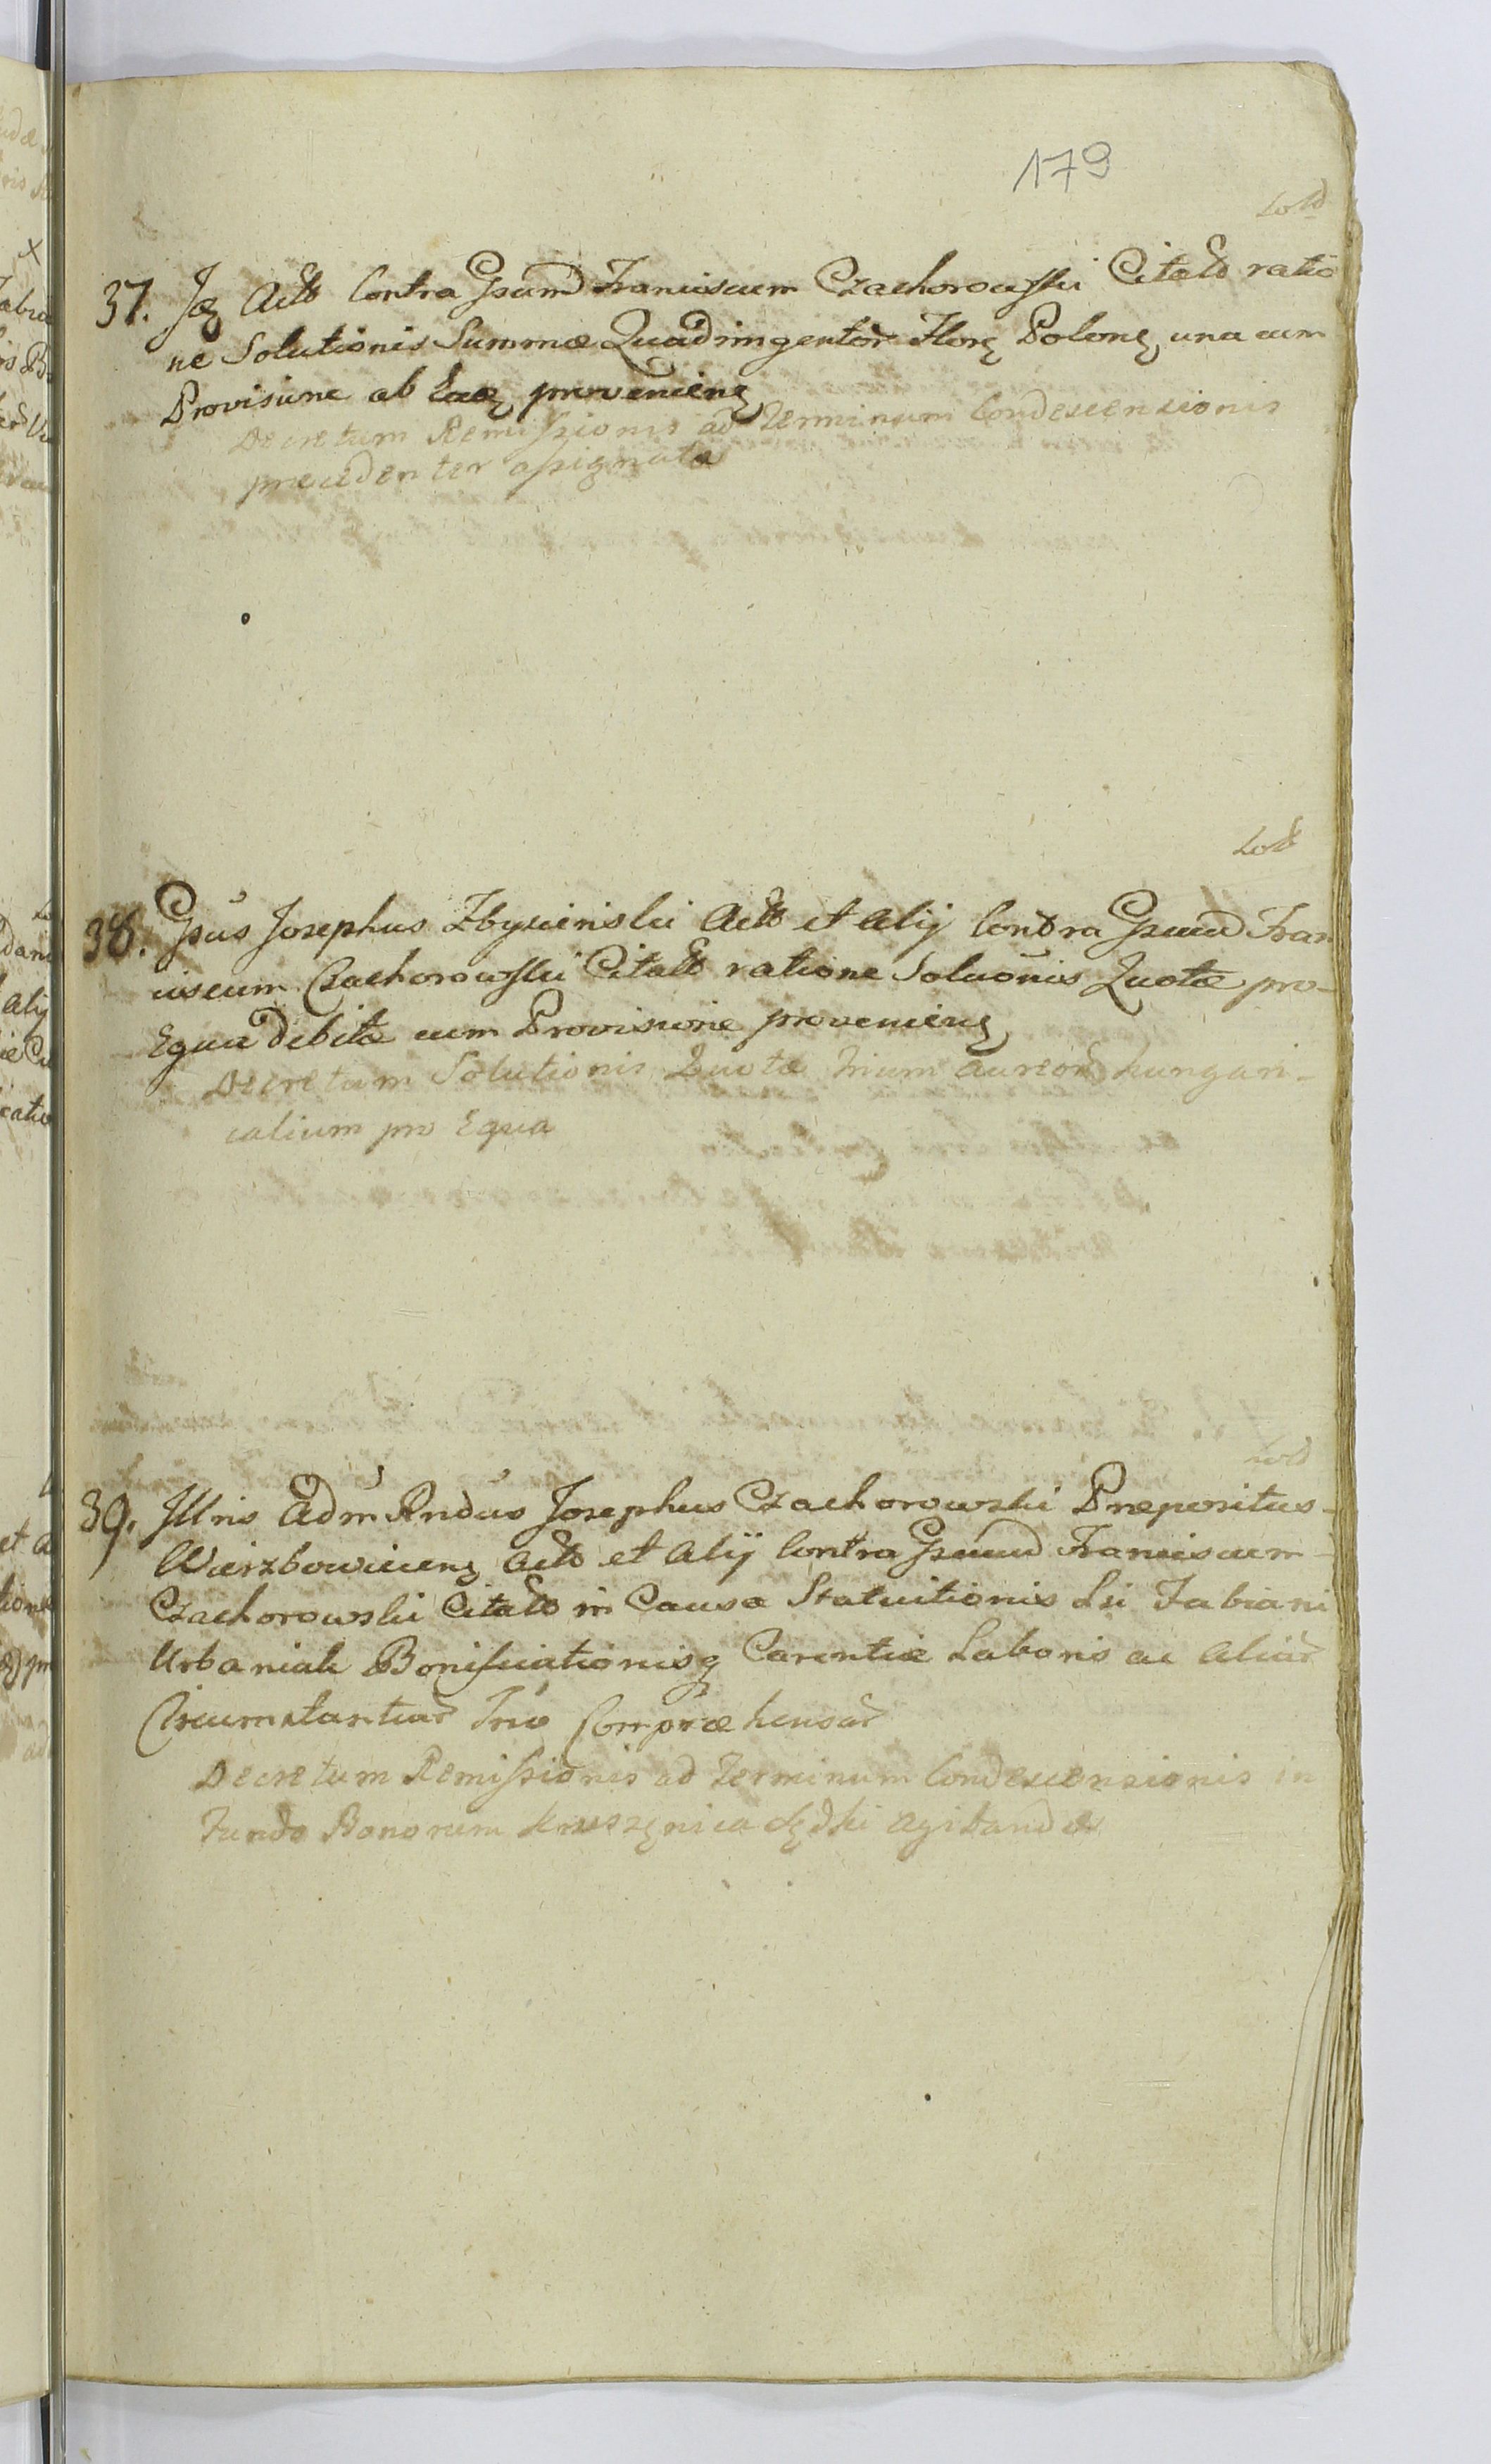 179
37. Jdẽ Actõ Contra Gsum̃ Franciscum Czachorowski Citatõ ratio
ne Solutionis Summæ Quadringentor̃ Flõr Polonẽ, una cum
Provisione ab Eadẽ provenienẽ
Decretum Remissionis ad Terminum Condescensionis
præcedenter assignatæ
38. Gsũs Josephus Zbyszenski Actõ et Alij Contra Gsum̃ Fran
ciscum Czachorowski Citatõ ratione Soluõnis Quotæ pro
Equa debitæ cum Provisione provenienẽ
Decretum Solutionis Quotæ trium Aureor̃ hungari-
calium pro Equa
39. Illris Adm̃ Rndũs Josephus Czachorowski Præpositus
Wierzbowicenẽ Actõ et Alij Contra Gsum̃ Franciscum
Czachorowski Citatõ in Causa Statuitionis Lsi Fabiani
Urbaniak Bonificationisq Carentiæ Laboris ac Aliar̃
Circumstantiar̃ Comprœhensar̃
Decretum Remissionis ad Terminum Condescensionis in
Fundo Bonorum agitandæ